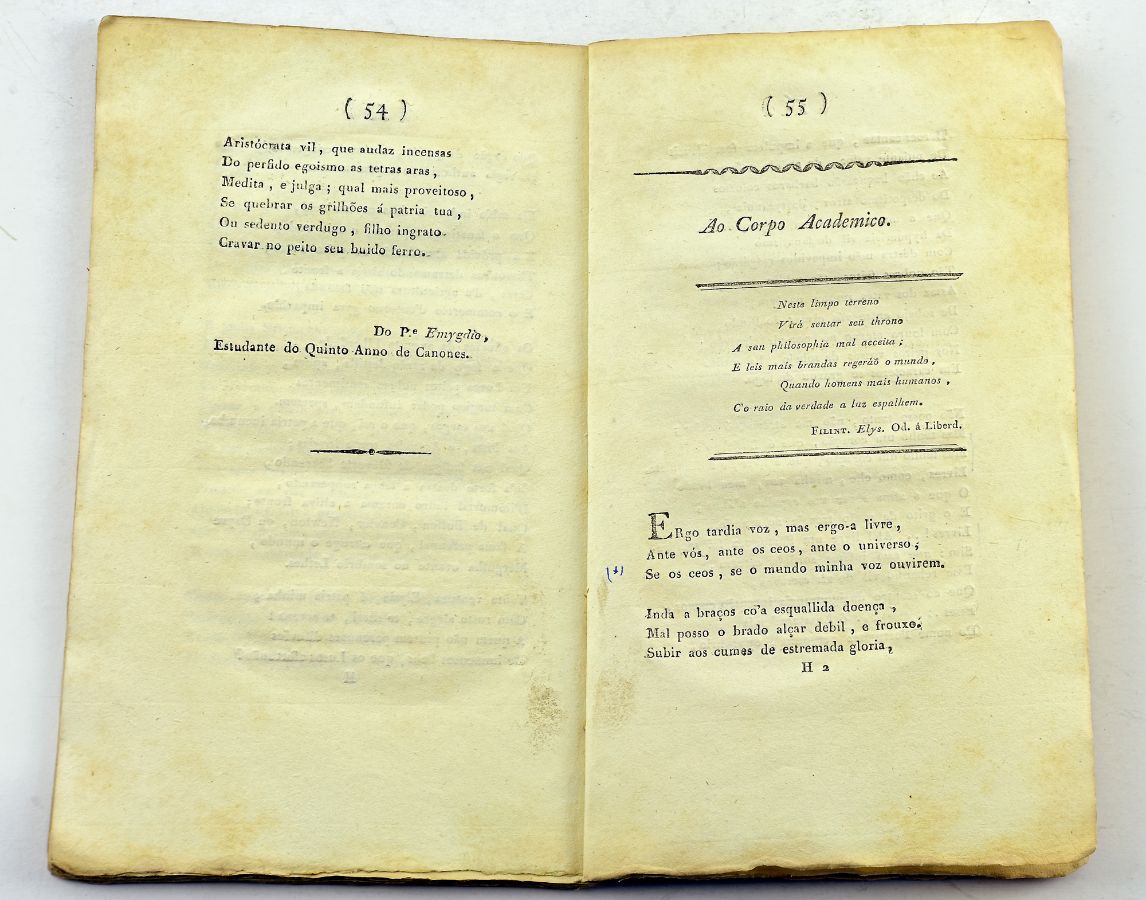 ( 54 )
Aristócrata vil, que audaz incensas
Do perfido egoismo as tetras aras,
Medita, e julga; qual mais proveitoso,
Se quebrar os grilhões á patria tua,
Ou sedento verdugo, filho ingrato
Cravar no peito seu buido ferro.
Do P.e Emygdio,
Estudante do Quinto Anno de Canones.
( 55 )
Ao Corpo Academico.
Neste limpo terreno
Virá sentar seu throno
A san philosophia mal acceita;
E leis mais brandas regeráõ o mundo,
Quando homens mais humanos,
C'o raio da verdade a luz espalhem.
FILINT. Elys. Od. á Liberd.
ERgo tardia voz, mas ergo-a livre,
Ante vós, ante os ceos, ante o universo;
Se os ceos, se o mundo minha voz ouvirem.
Inda a braços co'a esquallida doença,
Mal posso o brado alçar debil, e frouxo;
Subir aos cumes de estremada gloria,
H 2